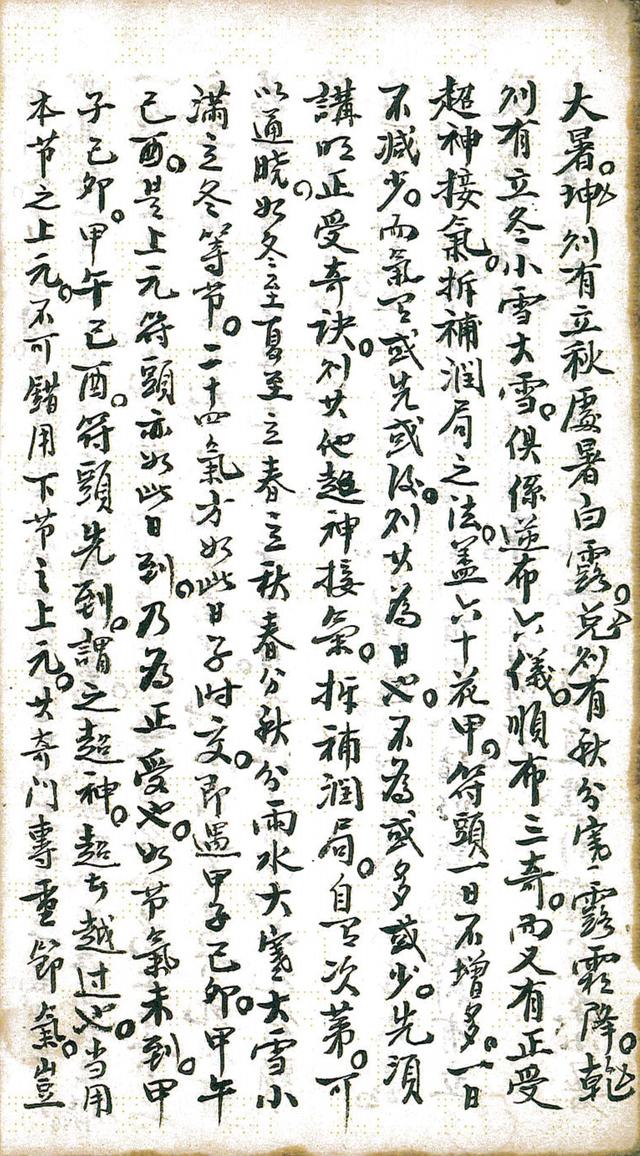 大暑。坤則有立秋處暑白露。兌則有秋分寒露霜降。乾
則有立冬小雪大雪。俱係逆布六儀。順布三奇。而又有正受
超神接氣。拆補潤局之法。盖六十花甲。符頭一日不增多。一日
不減少。而氣又或先或後。則其為日也。不為或多或少。先須
講明正受奇訣。則其他超神接氣。拆補潤局。自有次第。可
以通曉。如冬至夏至立春立秋春分秋分雨水大寒大雪小
滿立冬等节。二十四氣方如此日子时交。即遇甲子己卯。甲午
己酉。是上元符頭亦如此日到。乃為正受也。如节氣未到。甲
子己卯。甲午己酉。符頭先到。謂之超神。超者越过也。当用
本节之上元。不可錯用下节之上元。其奇门專重節氣。豈